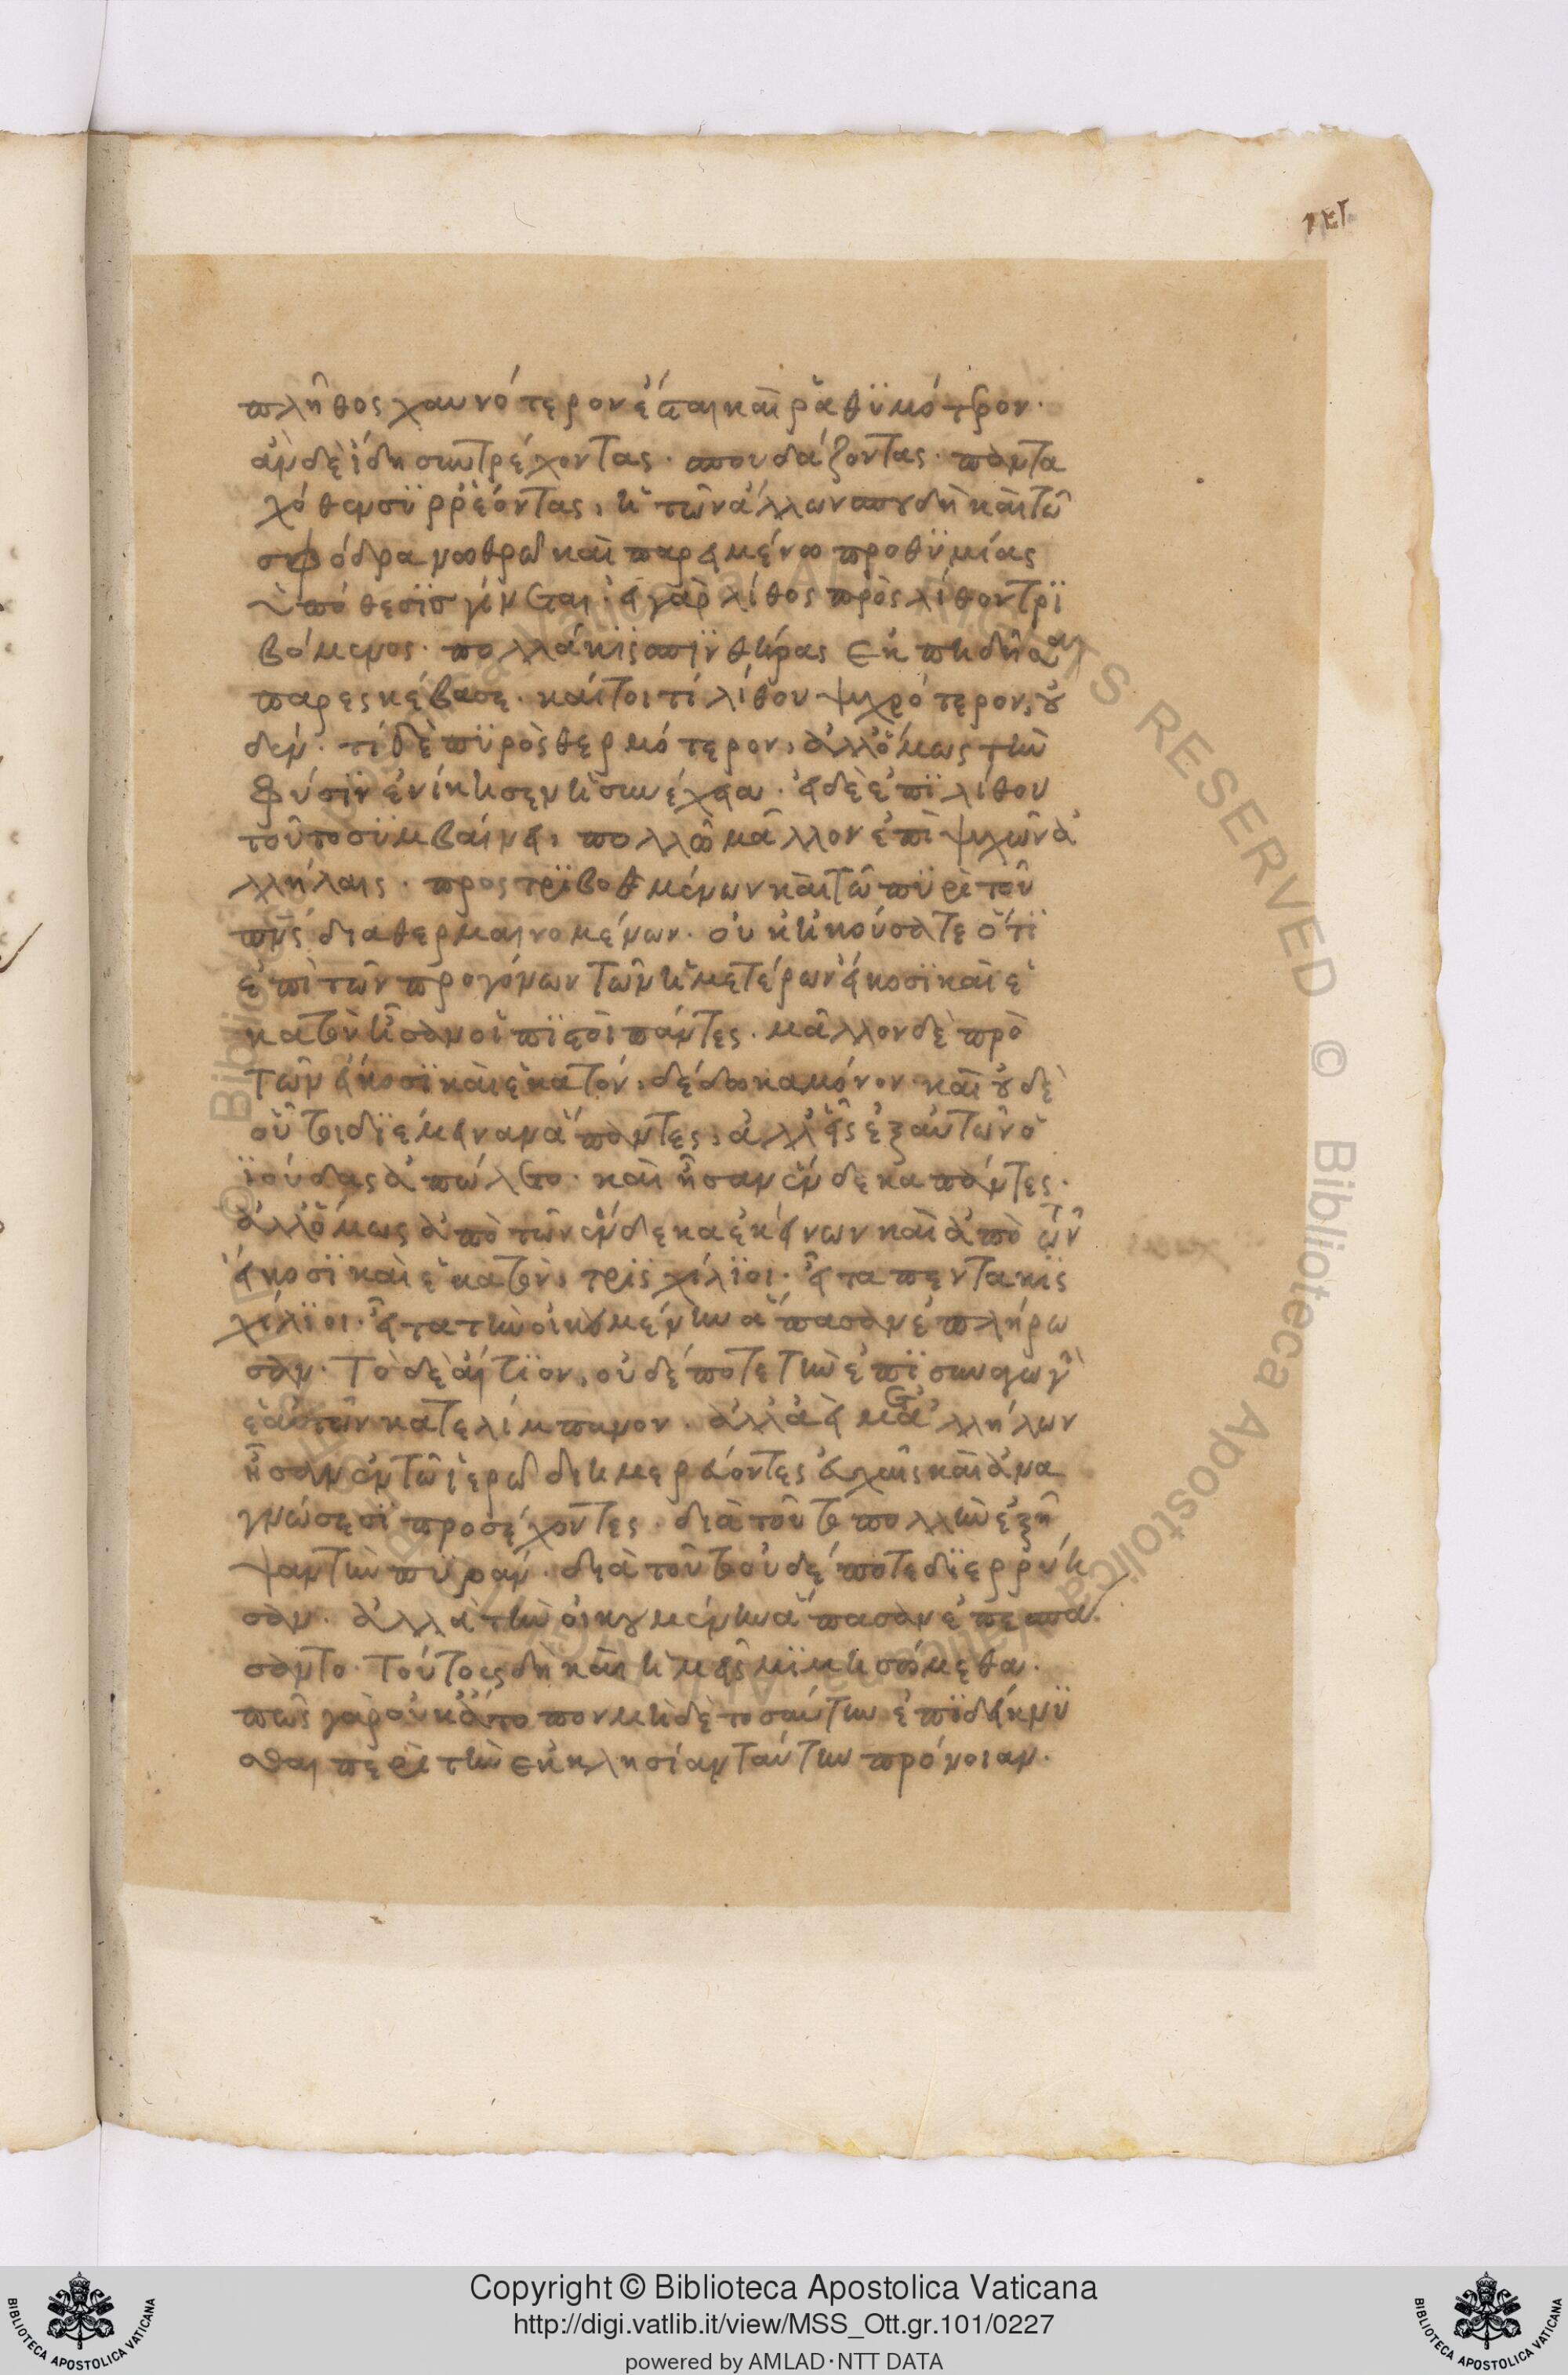 πλῆθος χαυνότερον ἔσται καὶ ῥαθϋμότερον·
ἀν δὲ ἴδη συντρέχοντας· σπουδάζοντας· παντα
χόθεν σϋρρέοντας, ἡ τῶν ἄλλων σπουδὴ καὶ τῶ
σφόδρα νωθρῶ καὶ παρειμένω προθϋμίας
ὑπόθεσϊς γίνεται· εἰ γὰρ λίθος πρὸς λίθον τρϊ
βόμενος· πολλάκϊς σπϊνθῆρας ἐκπηδῆσαι
παρεσκεύασε· καίτοι τί λίθου ψυχρότερον, οὐ
δέν· τί δὲ πϋρὸς θερμότερον, ἀλλ' ὅμως τὴν
φύσϊν ἐνίκησεν ἡ συνέχεια· εἰ δὲ ἐπϊ λίθου
τοῦτο σϋμβαίνει, πολλῶ μᾶλλον ἐπὶ ψυχῶν ἀ
λλήλαις· προστρϊβομένων καὶ τῶ πϋρὶ τοῦ
πνς διαθερμαινομένων· οὐκ ἠκούσατε ὅτϊ
ἐπὶ τῶν προγόνων τῶν ἡμετέρων εἴκοσϊ καὶ ἑ
κατὸν ἦσαν οἱ πϊστοὶ πάντες· μᾶλλον δὲ πρὸ
τῶν εἴκοσϊ καὶ ἑκατόν, δώδεκα μόνον καὶ οὐδὲ
οὗτοι δϊέμειναν ἅπαντες, ἀλλ' εἷς ἐξ αὐτῶν ὁ
ϊούδας ἀπώλετο· καὶ ἦσαν ἕνδεκα πάντες·
ἀλλ' ὅμως ἀπὸ τῶν ἕνδεκα ἐκείνων καὶ ἀπὸ τῶν
εἴκοσϊ καὶ ἑκατὸν, τρϊςχίλϊοι· εἶτα πεντακϊς
χίλϊοι· εἶτα τὴν οἰκουμένην ἅπασαν ἐπλήρω
σαν· Τὸ δὲ αἴτϊον, οὐδέποτε τὴν ἐπϊσυναγωγὴ
ἑαυτῶν κατελίμπανον· ἀλλὰ ἀεὶ μετ' ἀλλήλων
ἦσαν ἐν τῶ ἱερῶ διημερεύοντες εὐχαῖς καὶ ἀνα
γνώσεσϊ προσέχοντες· διὰ τοῦτο πολλὴν ἐξῆ
ψαν τὴν πϋράν· διὰ τοῦτο οὐδέποτε δϊερρύη
σαν· ἀλλὰ τὴν οἰκουμένην ἅπασαν ἐπεσπά
σαντο· Τούτους δὴ καὶ ἡμεῖς μϊμησώμεθα·
πῶς γὰρ οὐκ ἄτοπον μηδὲ τοσαύτην ἐπϊδείκνϋ
σθαι περὶ τὴν ἐκκλησίαν ταύτην πρόνοιαν·
Copyright © Biblioteca Apostolica Vaticana
http://digi.vatlib.it/view/MSS_Ott.gr.101/0227
powered by AMLAD·NTT DATA